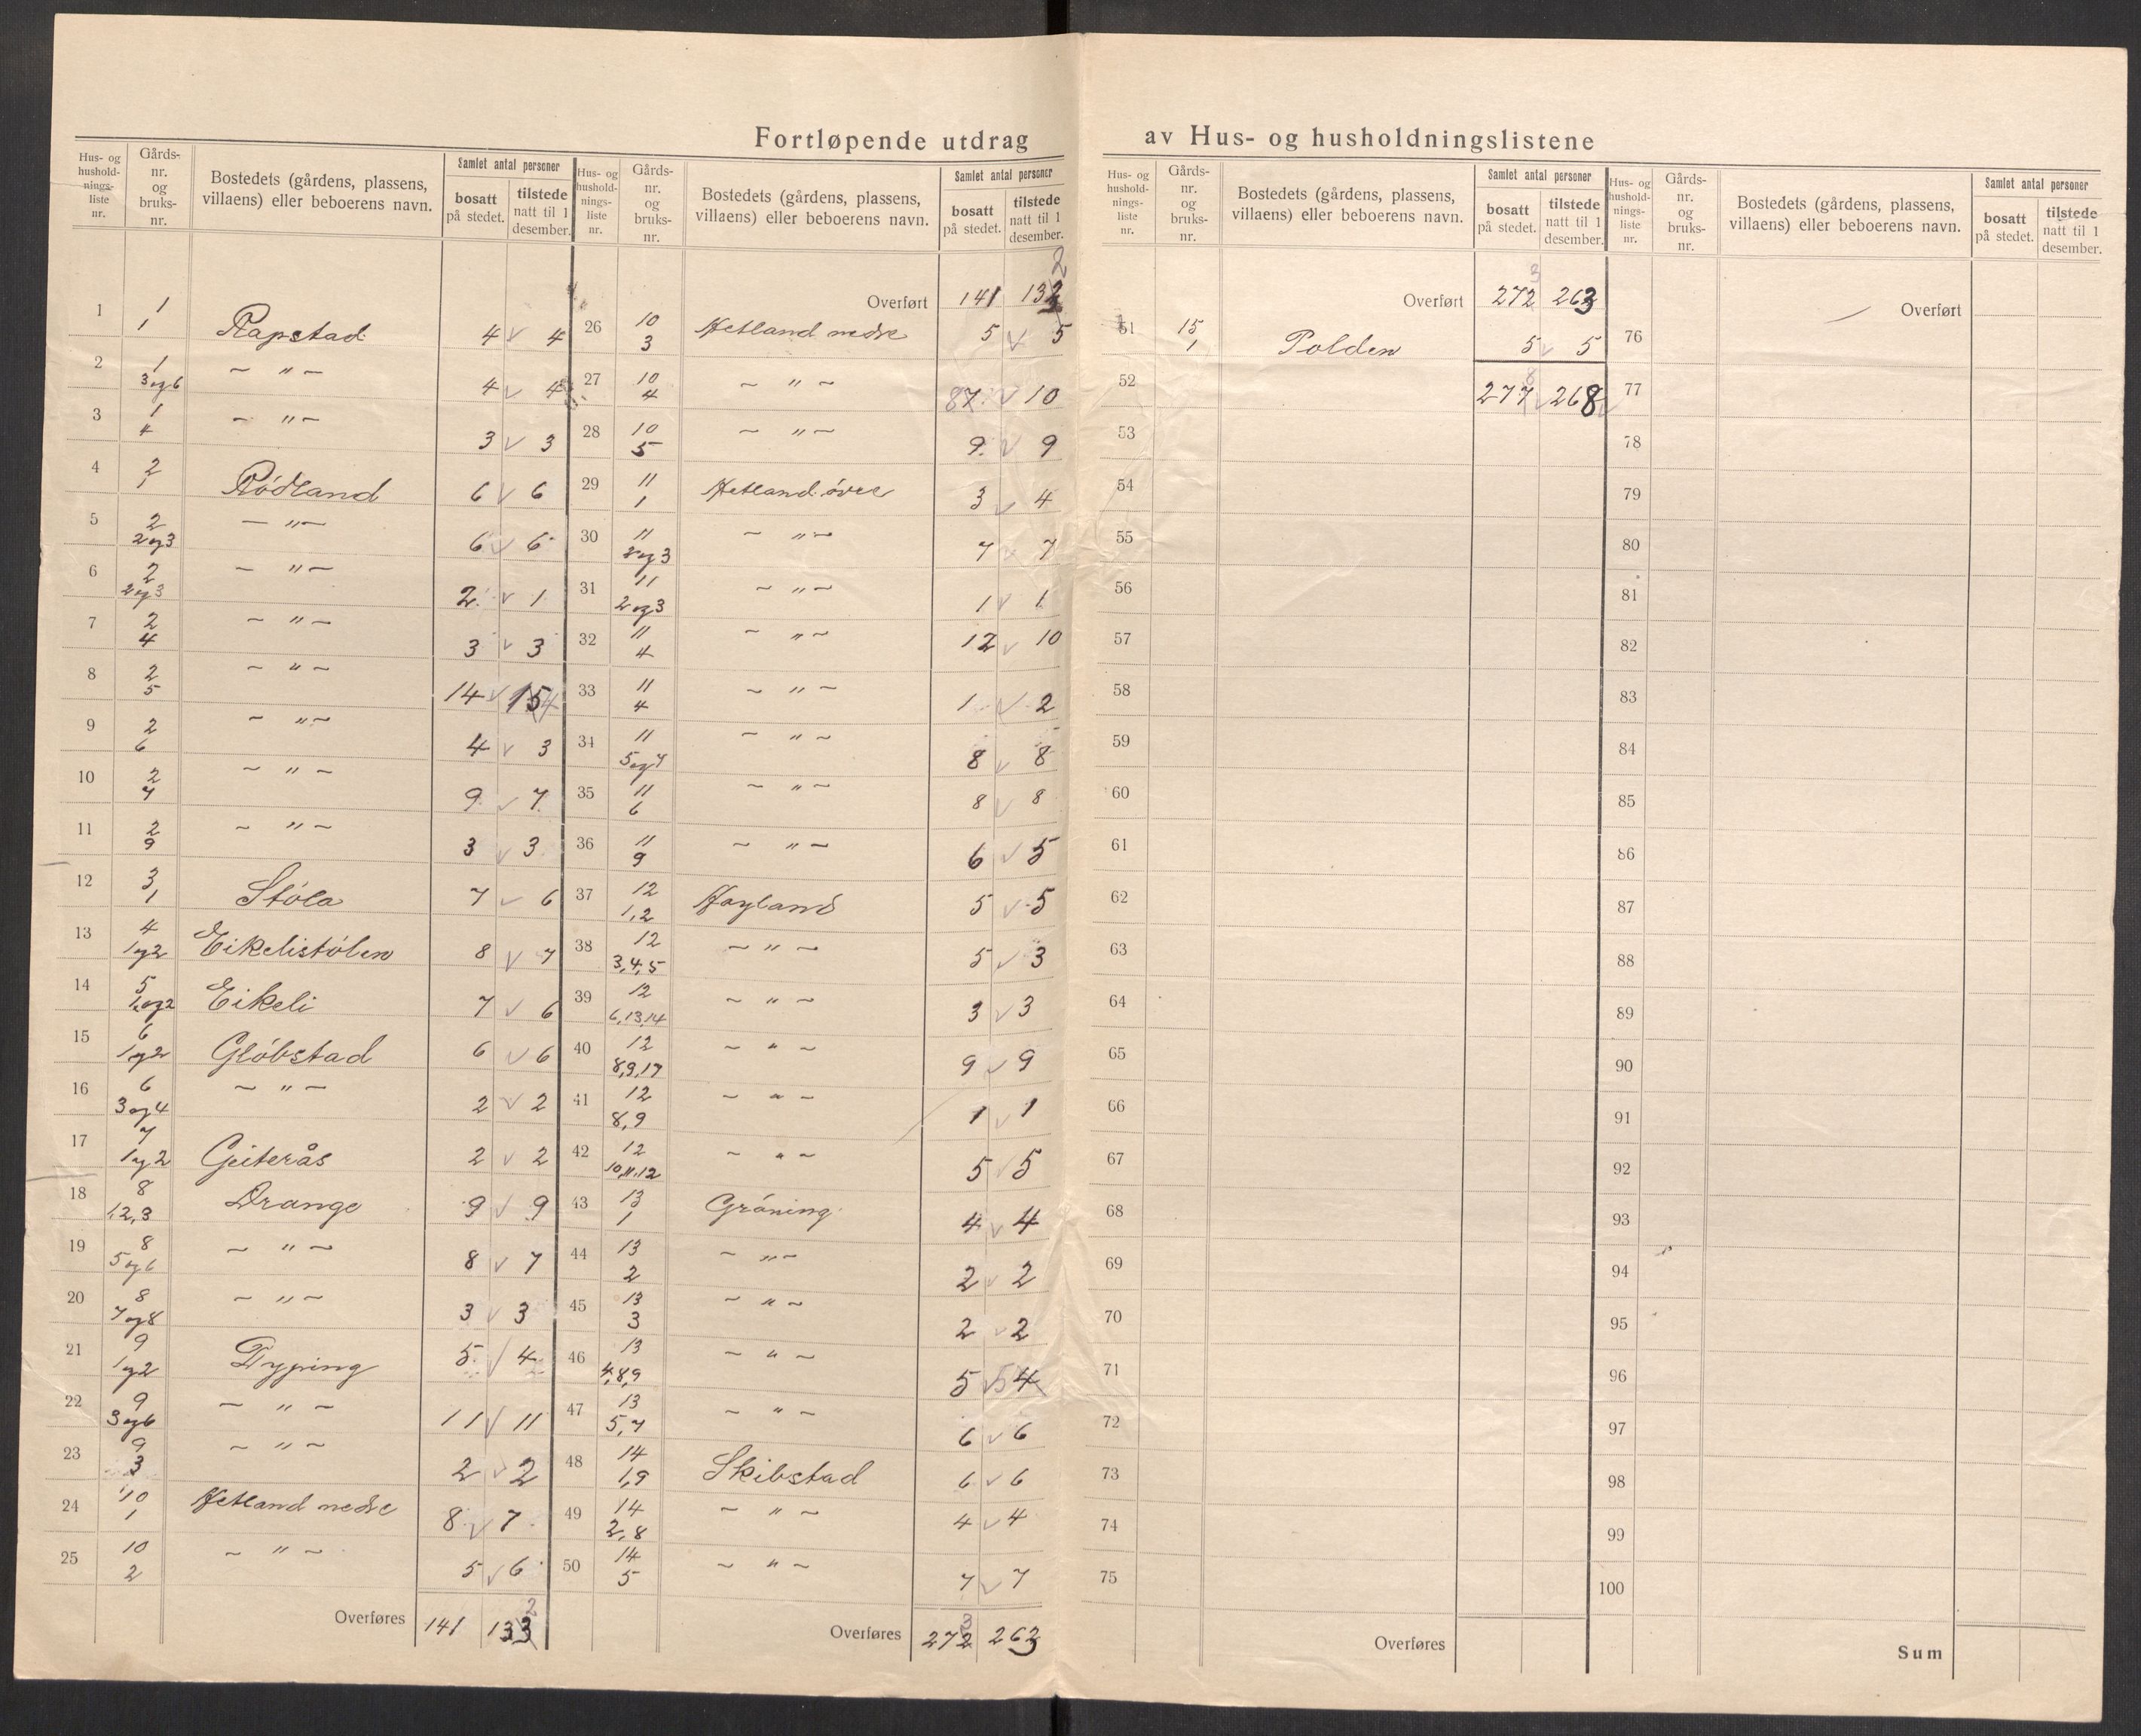 Fortløpende utdrag av Hus- og husholdningslistene
Hus- og hushold-nings-liste nr. Gårds-nr. og bruks-nr. Bostedets (gårdens, plassens, villaens) eller beboerens navn. Samlet antal personer bosatt på stedet. tilstede natt til 1 desember.
1 1/1 Rapstad 4 v 4
2 1/3og6 ~ " ~ 4 v 4
3 1/4 ~ " ~ 3 v 3
4 2/1 Rødland 6 v 6
5 2/2og3 ~ " ~ 6 v 6
6 2/2og3 ~ " ~ 2 v 1
7 2/4 ~ " ~ 3 v 3
8 2/5 ~ " ~ 14 v 15 4
9 2/6 ~ " ~ 4 v 3
10 2/7 ~ " ~ 9 v 7
11 2/9 ~ " ~ 3 v 3
12 3/1 Støla 7 v 6
13 4/1og2 Eikelistølen 8 v 7
14 5/1og2 Eikeli 7 v 6
15 6/1og2 Gløbstad 6 v 6
16 6/3og4 ~ " ~ 2 v 2
17 7/1og2 Geiterås 2 v 2
18 8/1,2,3 Drange 9 v 9
19 8/5og6 ~ " ~ 8 v 7
20 8/7og8 ~ " ~ 3 v 3
21 9/1og2 Typing 5 v 4
22 9/3og6 ~ " ~ 11 v 11
23 9/3 ~ " ~ 2 v 2
24 10/1 Hetland nedre 8 v 7
25 10/2 ~ " ~ 5 v 6
Overføres 141 133 2
Hus- og hushold-nings-liste nr. Gårds-nr. og bruks-nr. Bostedets (gårdens, plassens, villaens) eller beboerens navn. Samlet antal personer bosatt på stedet. tilstede natt til 1 desember.
Overført 141 132 2
26 10/3 Hetland nedre 5 v 5
27 10/4 ~ " ~ 8 7 v 10
28 10/5 ~ " ~ 9 v 9
29 11/1 Hetland øvre 3 v 4
30 11/2og3 ~ " ~ 7 v 7
31 11/2og3 ~ " ~ 1 v 1
32 11/4 ~ " ~ 12 v 10
33 11/4 ~ " ~ 1 v 2
34 11/5og7 ~ " ~ 8 v 8
35 11/6 ~ " ~ 8 v 8
36 11/9 ~ " ~ 6 v 5
37 12/1,2 Høyland 5 v 5
38 12/3,4,5 ~ " ~ 5 v 3
39 12/6,13,14 ~ " ~ 3 v 3
40 12/8,9,17 ~ " ~ 9 v 9
41 12/8,9 ~ " ~ 1 v 1
42 12/10,11,12 ~ " ~ 5 v 5
43 13/1 Grøning 4 v 4
44 13/2 ~ " ~ 2 v 2
45 13/3 ~ " ~ 2 v 2
46 13/4,8,9 ~ " ~ 5 v 5 4
47 13/5,7 ~ " ~ 6 v 6
48 14/1,9 Skibstad 6 v 6
49 14/2,8 ~ " ~ 4 v 4
50 14/5 ~ " ~ 7 v 7
Overføres 272 3 263
Hus- og hushold-nings-liste nr. Gårds-nr. og bruks-nr. Bostedets (gårdens, plassens, villaens) eller beboerens navn. Samlet antal personer bosatt på stedet. tilstede natt til 1 desember.
Overført 272 3 263
51 15/1 Polden 5 v 5
52 277 8 v 268 v
53
54
55
56
57
58
59
60
61
62
63
64
65
66
67
68
69
70
71
72
73
74
75
Overføres
Hus- og hushold-nings-liste nr. Gårds-nr. og bruks-nr. Bostedets (gårdens, plassens, villaens) eller beboerens navn. Samlet antal personer bosatt på stedet. tilstede natt til 1 desember.
Overført
76
77
78
79
80
81
82
83
84
85
86
87
88
89
90
91
92
93
94
95
96
97
98
99
100
Sum